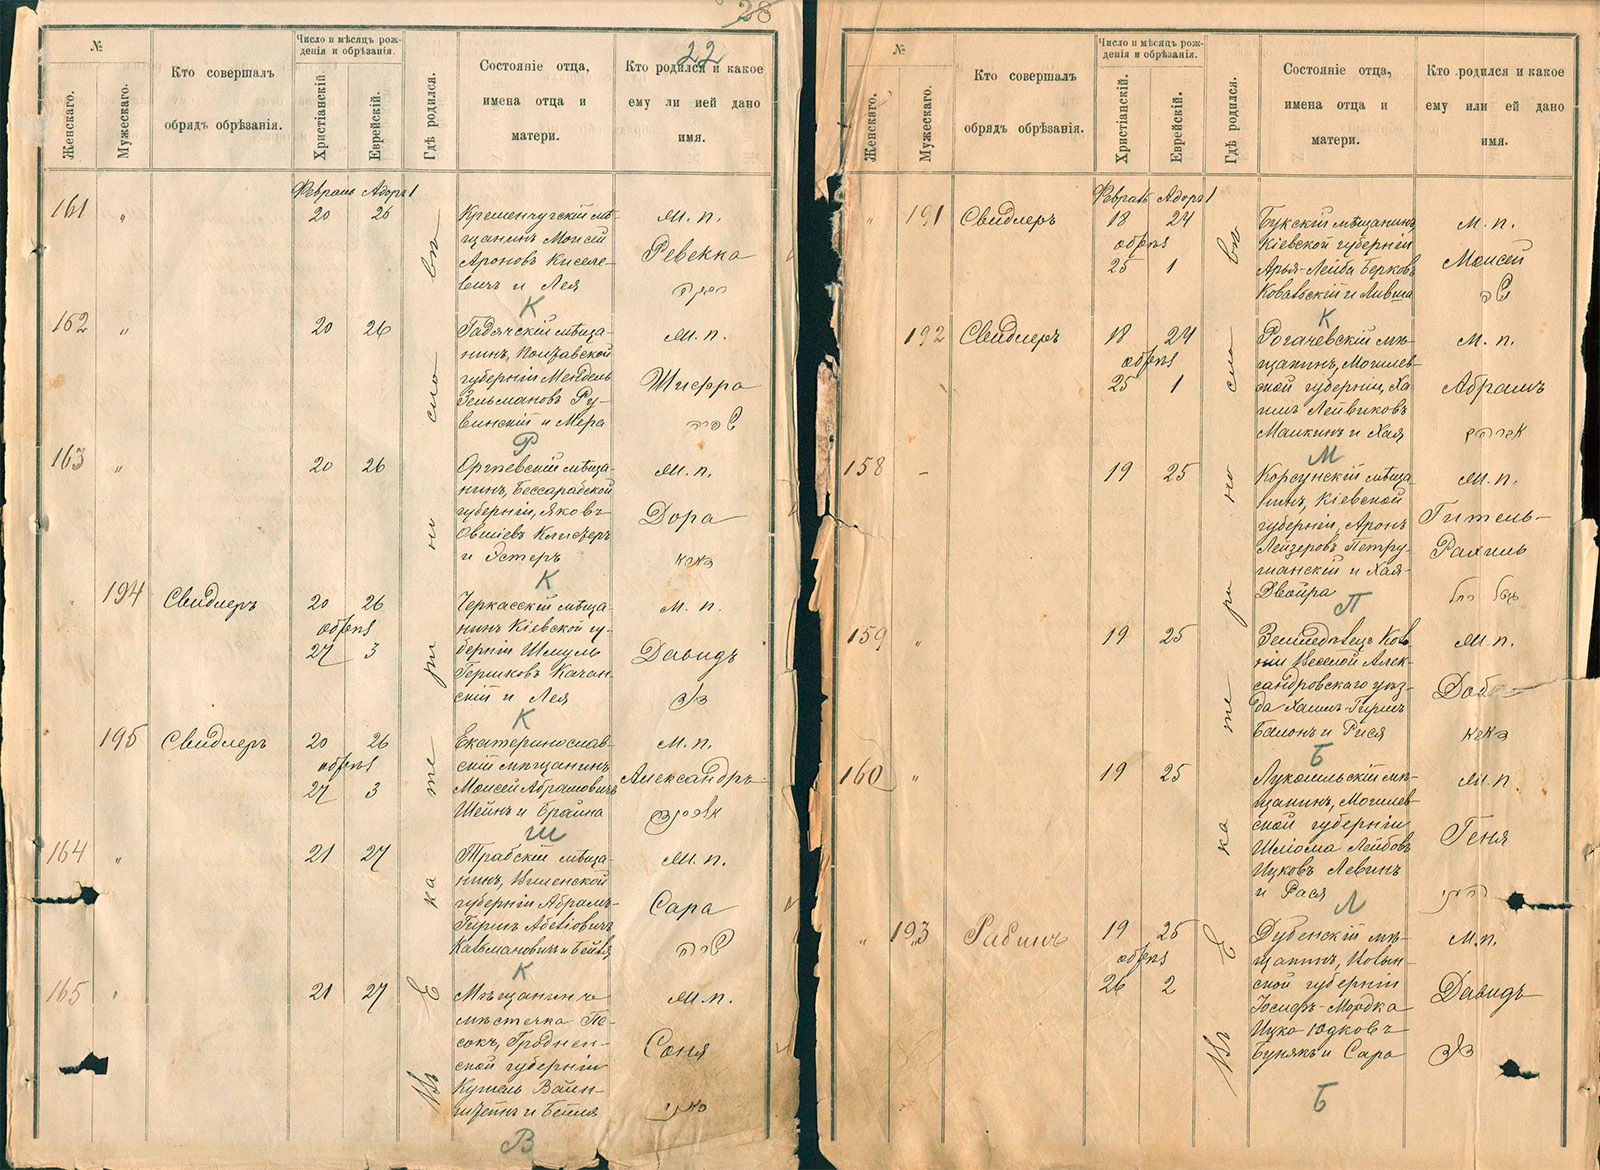 28
22
№
Женскаго.
Мужескаго.
Кто совершалъ
обрядъ обрѣзанія.
Число и мѣсяцъ рож-
денія и обрѣзанія.
Христіанскій.
Еврейскій.
Гдѣ родился.
Состояніе отца,
имена отца и
матери.
Кто родился и какое
ему ли ией дано
имя.
Февраль Адоръ 1
161 „ 20 26
Кременчугскій мѣ-
щанинъ Моисей
Ароновъ Киселе-
вичъ и Лея
К
м. п.
Ревекка
162 „ 20 26
Гадячскій мѣща-
нинъ, Полтавской
губерніи Мендель
Зельмановъ Ру-
винскій и Мера
Р
м. п.
Шифра
163 „ 20 26
Оргѣевскій мѣща-
нинъ, Бессарабской
губерніи, Яковъ
Овшіевъ
и Эстеръ
К
м. п.
Дора
194 Свидлеръ 20 26
обрѣз
27 3
Черкасскій мѣща-
нинъ Кіевской гу-
берніи Шмуль
Гершковъ Качан-
скій и Лея
К
м. п.
Давидъ
דוד
195 Свидлеръ 20 26
обрѣз
27 3
Екатеринослав-
скій мѣщанинъ
Моисей Абрамовичъ
Шейнъ и Брайна
Ш
м. п.
Александръ
164 „ 21 27
Трабскій мѣща-
нинъ, Виленской
губерніи Абрамъ-
Гиршъ
Кальмановичъ и Бейля
К
м. п.
Сара
שרה
165 „ 21 27
Мѣщанинъ
мѣстечка Пе-
сокъ, Гроднен-
ской губерніи
Кушель Вайн-
штейнъ и Бейля
В
м. п.
Соня
Въ Екатеринославѣ
№
Женскаго.
Мужескаго.
Кто совершалъ
обрядъ обрѣзанія.
Число и мѣсяцъ рож-
денія и обрѣзанія.
Христіанскій.
Еврейскій.
Гдѣ родился.
Состояніе отца,
имена отца и
матери.
Кто родился и какое
ему или ей дано
имя.
Февраль Адоръ 1
„ 191 Свидлеръ 18 24
обрѣз
25 1
Букскій мѣщанинъ
Кіевской губерніи
Арья-Лейбъ Берковъ
Ковальскій и Ливша
К
м. п.
Моисей
משה
192 Свидлеръ 18 24
обрѣз
25 1
Рогачевскій мѣ-
щанинъ, Могилев-
ской губерніи, Ха-
имъ Лейвиковъ
Малкинъ и Хая
М
м. п.
Абрамъ
אברהם
158 – 19 25
Корсунскій мѣща-
нинъ, Кіевской
губерніи, Аронъ
Лейзеровъ Петру-
шанскій и Хая-
Двойра
П
м. п.
Гитель-
Рахиль
גיטל רחל
159 „ 19 25
Земледѣлецъ Коло
ніи Веселой Алек-
сандровскаго уѣз-
да Хаимъ-Гиршъ
Балонъ и Рися
Б
м. п.
160 „ 19 25
мѣ-
щанинъ, Могилев-
ской губерніи
Шліома Лейбовъ
Ицковъ Левинъ
и Рася
Л
м. п
Геня
„ 193 Рабинъ 19 25
обрѣз
26 2
Дубенскій мѣ-
щанинъ, Волын-
ской губерніи
Іосифъ-Мордка
Ицко-Юдковъ
Бунякъ и Сара
Б
м. п.
Давидъ
דוד
Въ Екатеринославѣ